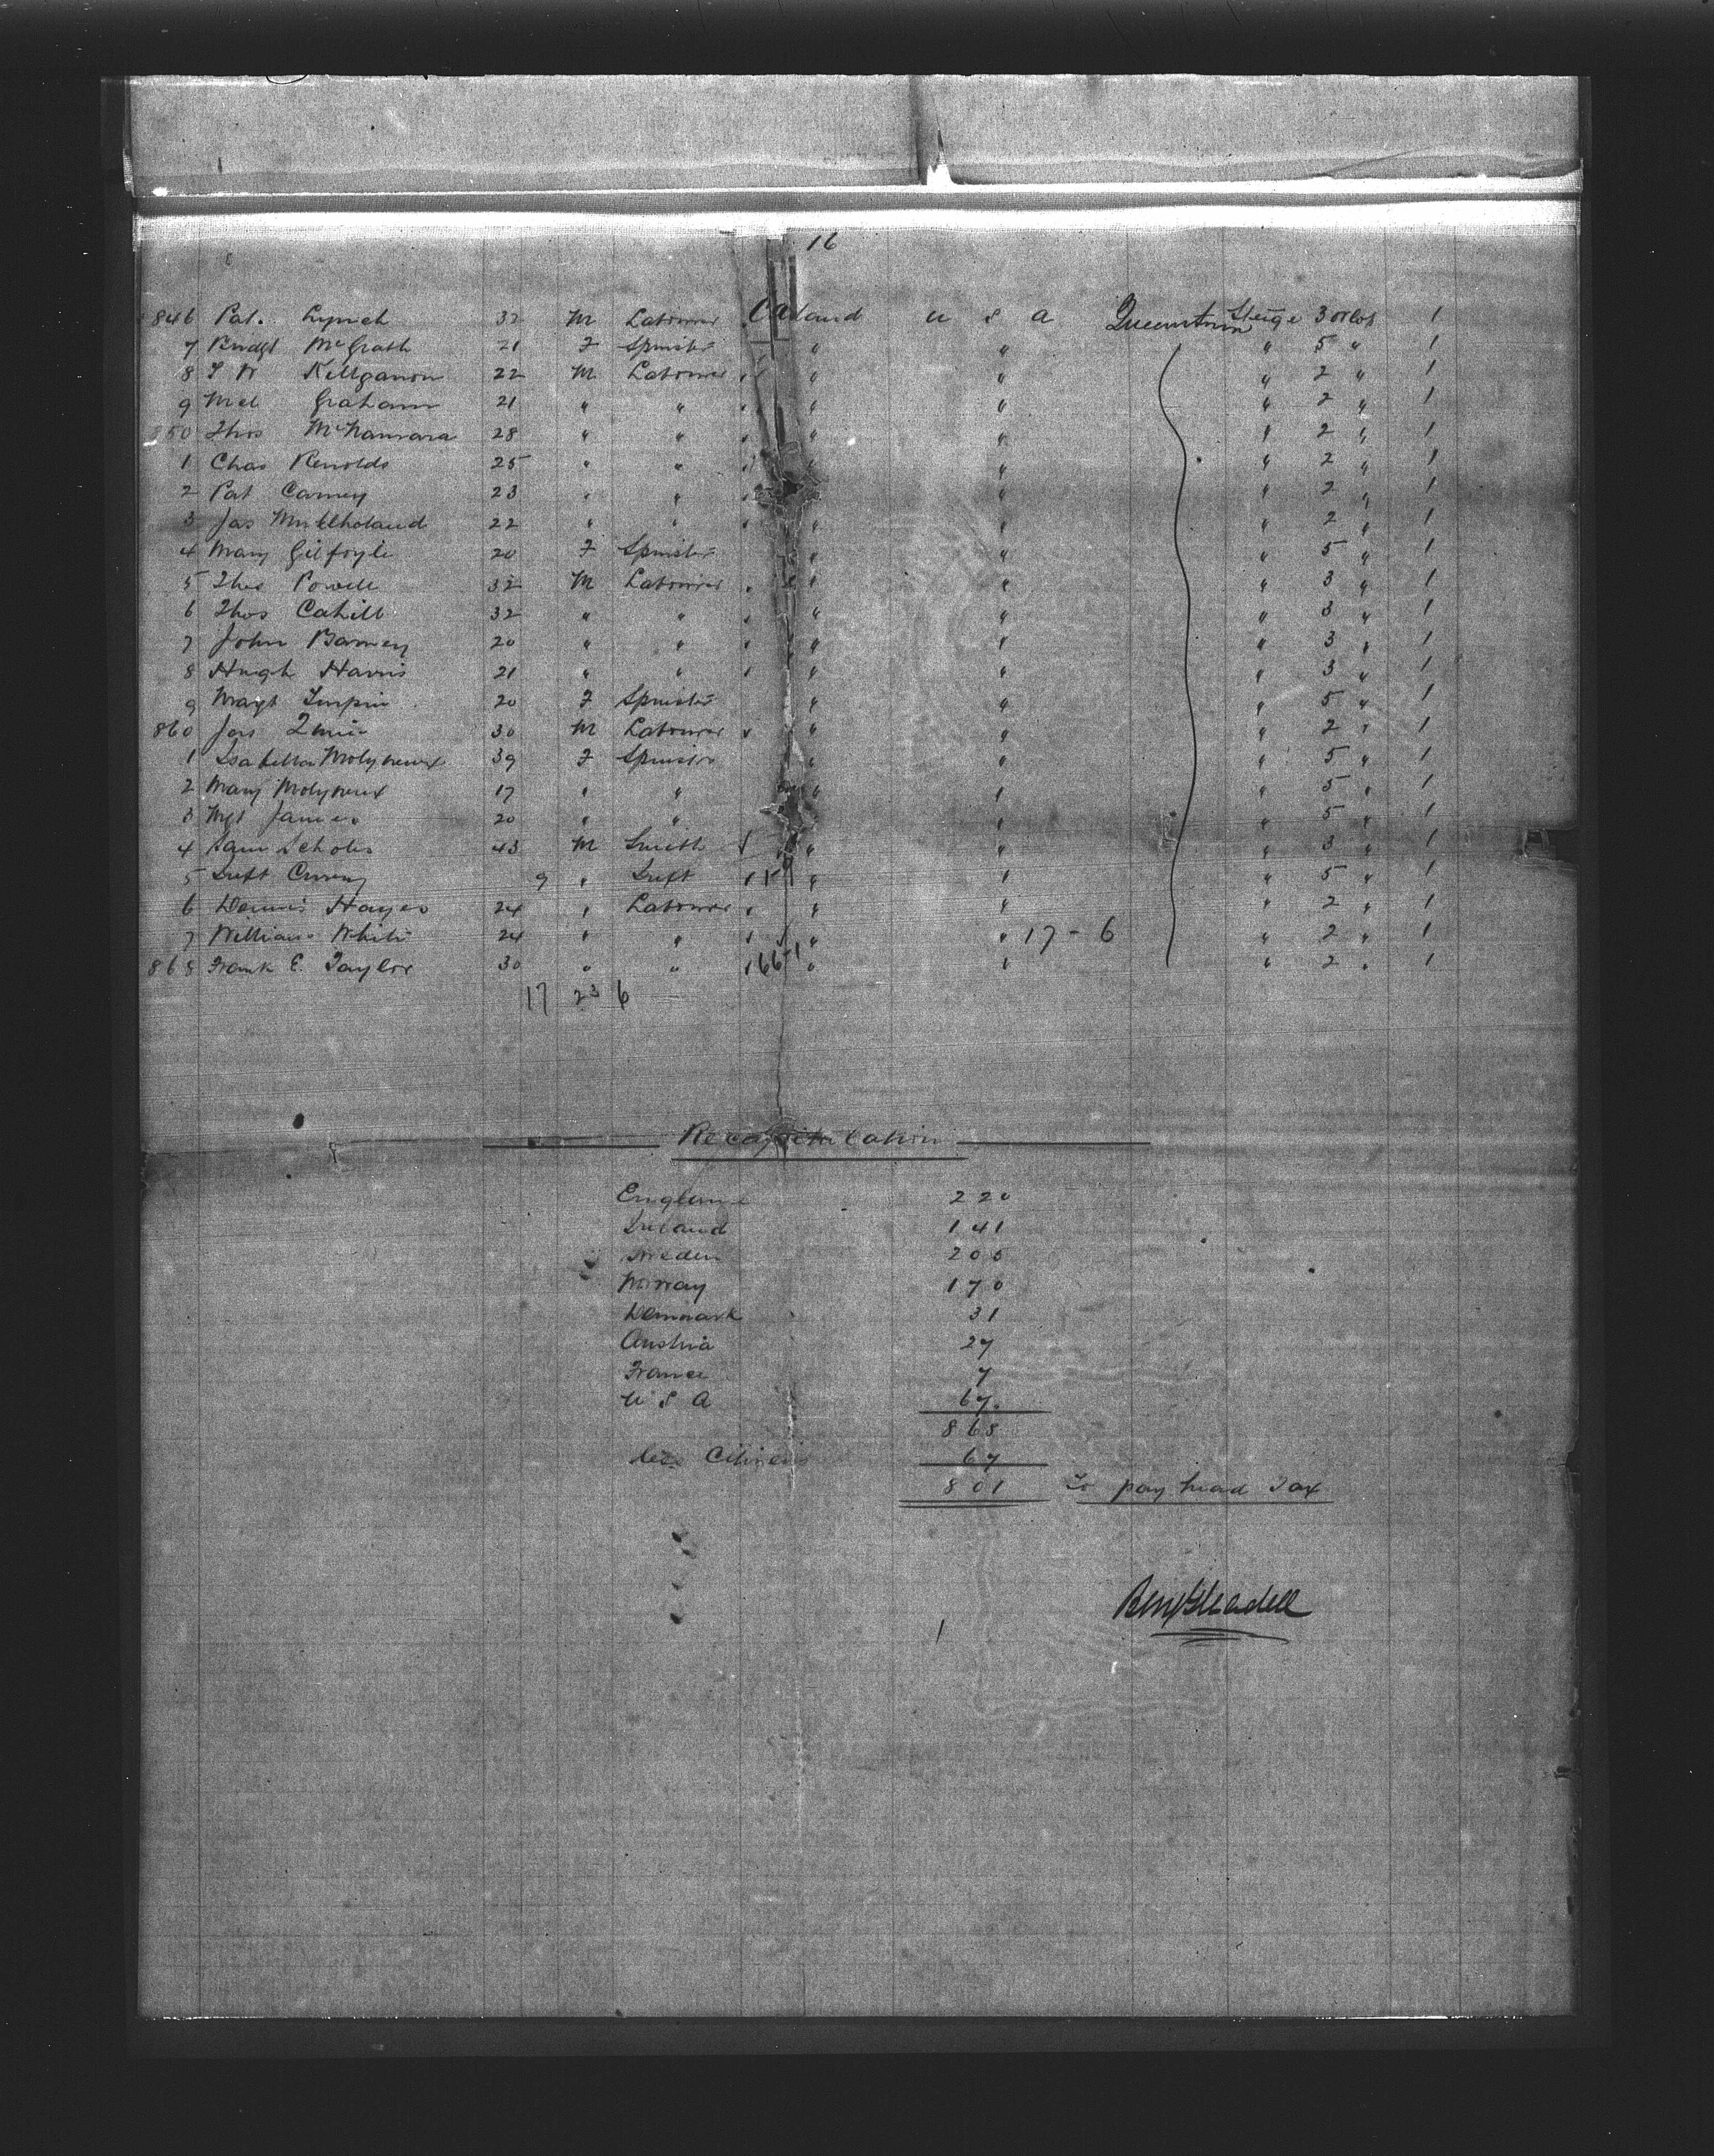 16
846 Pat. Lynch 32 M Labourer Ireland U S A Queenstown Steige 3 orlop 1
7 Bridgt McGrath 21 F Spinster " " " 5 " 1
8 Killganon 22 M Labourer " " " 2 " 1
9 Mcl Graham 21 " " " " " 2 " 1
850 Thos McNamara 28 " " " " " 2 " 1
1 Chas Renolds 25 " " " " " 2 " 1
2 Pat Carney 23 " " " " " 2 " 1
3 Jas Mullholand 22 " " " " " 2 " 1
4 Mary Gilfoyle 20 F Spinster " " " 5 " 1
5 Thos Powell 32 M Labourer " " " 3 " 1
6 Thos Cahill 32 " " " " " 3 " 1
7 John Barney 20 " " " " " 3 " 1
8 Hugh Harris 21 " " " " " 3 " 1
9 Margt Turpin 20 F Spinster " " " 5 " 1
860 Jas 30 M Labourer " " " 2 " 1
1 Isabella Molyneux 39 F Spinster " " " 5 " 1
2 Mary Molyneux 17 " " " " " 5 " 1
3 Mgt James 20 " " " " " 5 " 1
4 Sam Scholes 43 M Smith " " " 3 " 1
5 9 " " " " 5 " 1
6 Dennis Hayes 24 " Labourer " " " 2 " 1
7 William White 24 " " " " 17 - 6 " 2 " 1
868 Frank E. Taylor 30 " " " 66 1 " " " 2 " 1
17 23 6
Recapitulation
England 220
Ireland 141
Sweden 205
Norway 170
Denmark 31
Austria 27
France 7
U S A 67
868
less Citizens 67
801 To pay head Tax
Benj Gleadell